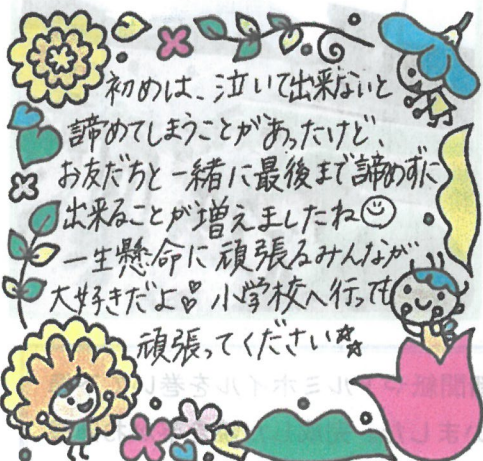 初めは、泣いて出来ないと
諦めてしまうことがあったけど、
お友だちと一緒に最後まで諦めずに
出来ることが増えましたね☺
一生懸命に頑張るみんなが
大好きだよ♡ 小学校へ行っても
頑張ってください☆☆